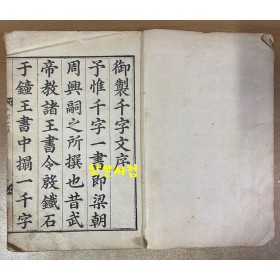 御製千字文序
予惟千字一書即梁朝
周興嗣之所撰也昔武
帝教諸王書令殷鐵石
于鐘王書中搨一千字